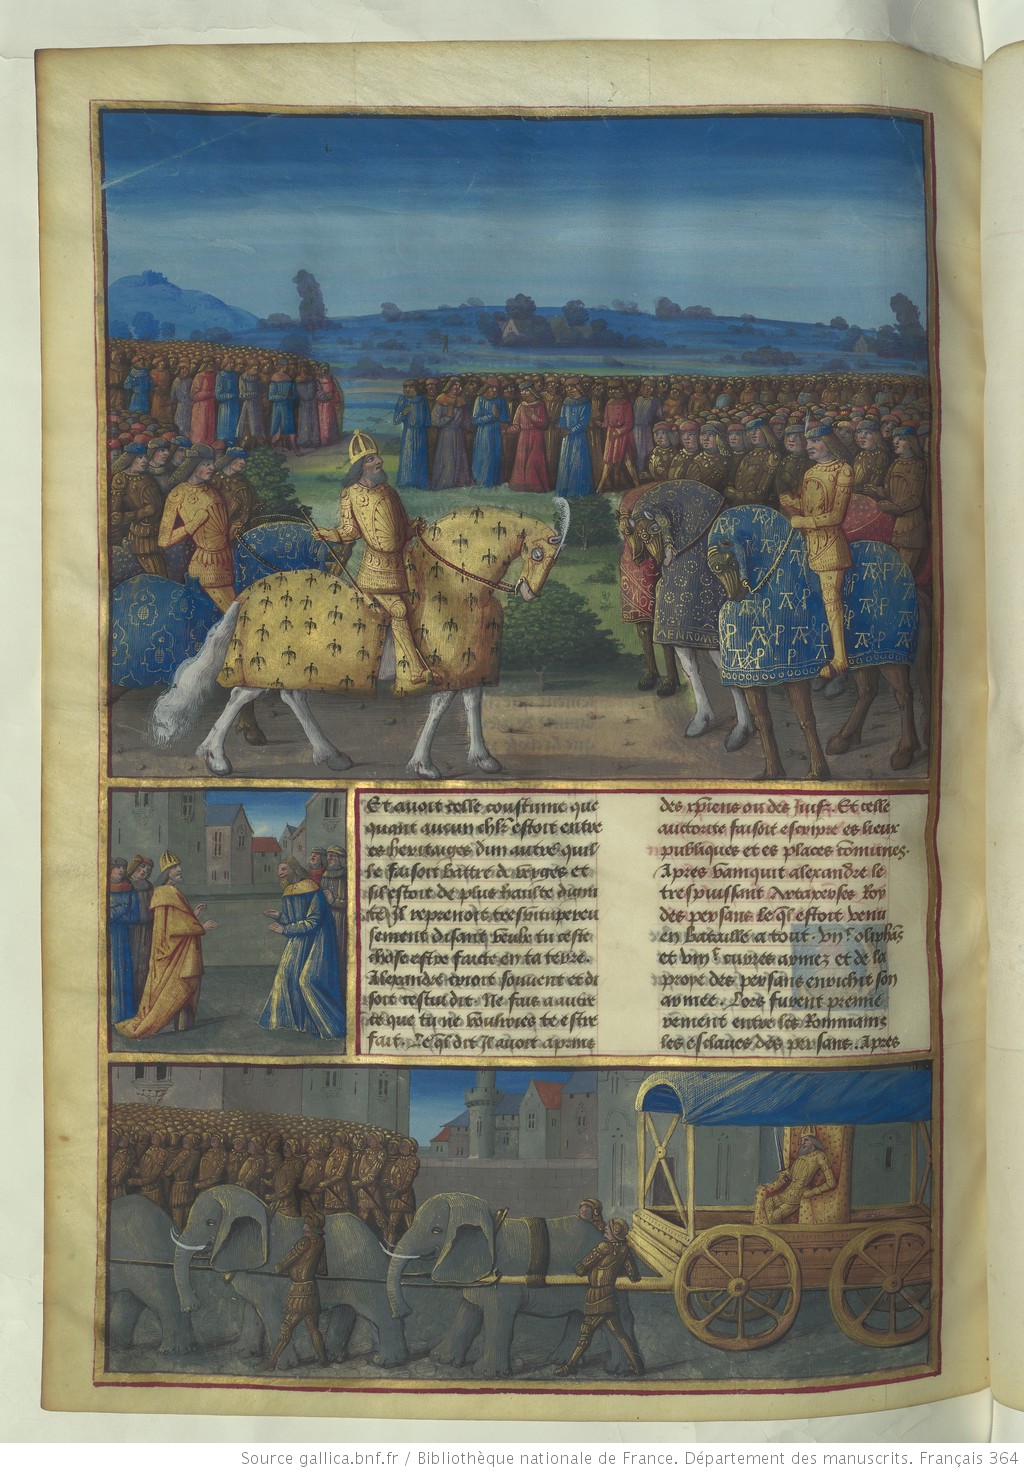 Et auoit celle coustume que
quant aucun chlr estoit entre
es heritaiges dun autre quil
le faisoit battre de verges et
sil estoit de plus haulte digni
te Il reprenoit
sement disant tu ceste
chose estre faicte en ta terre.
Alexandre crioit souuent et di
soit cestui dit. Ne fais a autre
ce que tu ne vouldroies te estre
fait. Le ql dit Il auoit aprins
des xpiens ou des Juifz. Et celle
auctorite faisoit escripre es lieux
publiques et es places cōmunes.
Apres vainquit alexandre le
trespuissant Artaxerses Roy
des persans le ql estoit venu
en bataille a tout . vijᶜ. oliphās
et armez et de la
proye des persans enrichit son
armee. Lors furent premie
rement entre les Rommains
les esclaues des persans. Apres
Source gallica.bnf.fr / Bibliothèque nationale de France. Département des manuscrits. Français 364